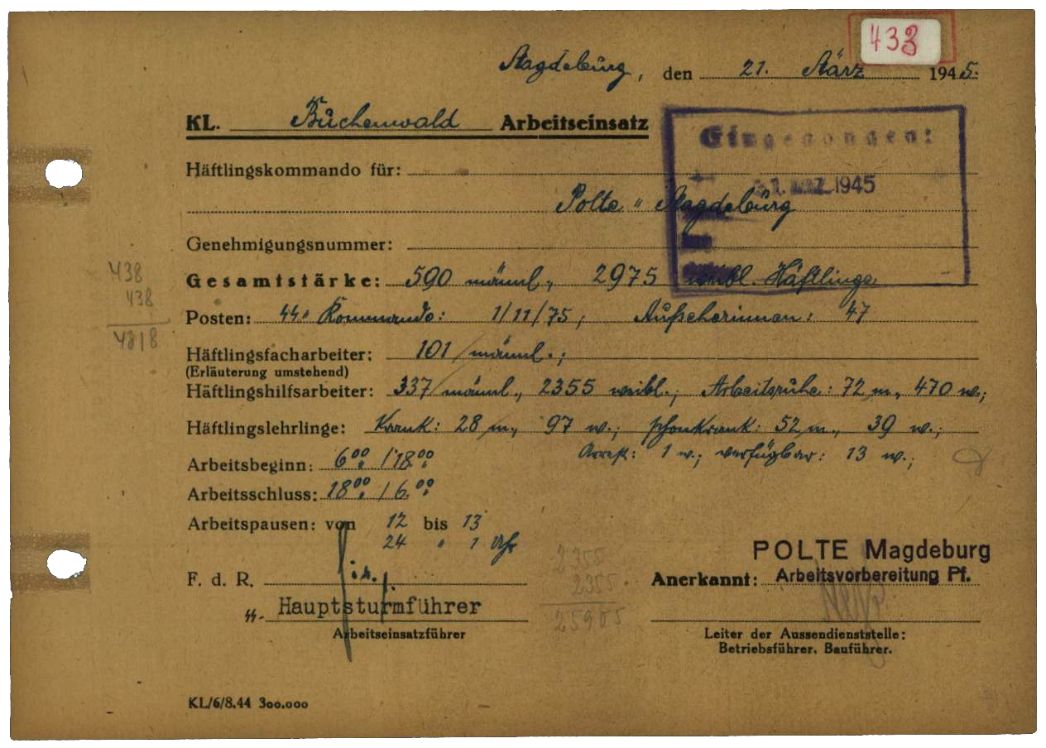 433
Magdeburg, den 21. März 1945.
KL. Buchenwald Arbeitseinsatz
Eingegangen:
1945
Häftlingskommando für:
Polte " Magdeburg
Genehmigungsnummer:
Gesamtstärke: 590 männl., 2975 weibl. Häftlinge
Posten: ᛋᛋ. Kommando: 1/11/75; Aufseherinnen: 47
438
438
Häftlingsfacharbeiter: 101 männl.;
(Erläuterung umstehend)
Häftlingshilfsarbeiter: 337 männl., 2355 weibl.; Arbeitsruhe: 72 m., 470 w.;
Häftlingslehrlinge: Krank: 28 m., 97 w.; schonkrank: 52 m., 39 w.;
Arrest: 1 w.; verfügbar: 13 w.;
Arbeitsbeginn: 6⁰⁰ / 18⁰⁰
Arbeitsschluss: 18⁰⁰ / 6⁰⁰
Arbeitspausen: von 12 bis 13
24 " 1 Uhr
2355
2355
F. d. R.
ᛋᛋ-Hauptsturmführer
Arbeitseinsatzführer
POLTE Magdeburg
Anerkannt: Arbeitsvorbereitung Pf.
Leiter der Aussendienststelle:
Betriebsführer. Bauführer.
KL/6/8.44 300.000